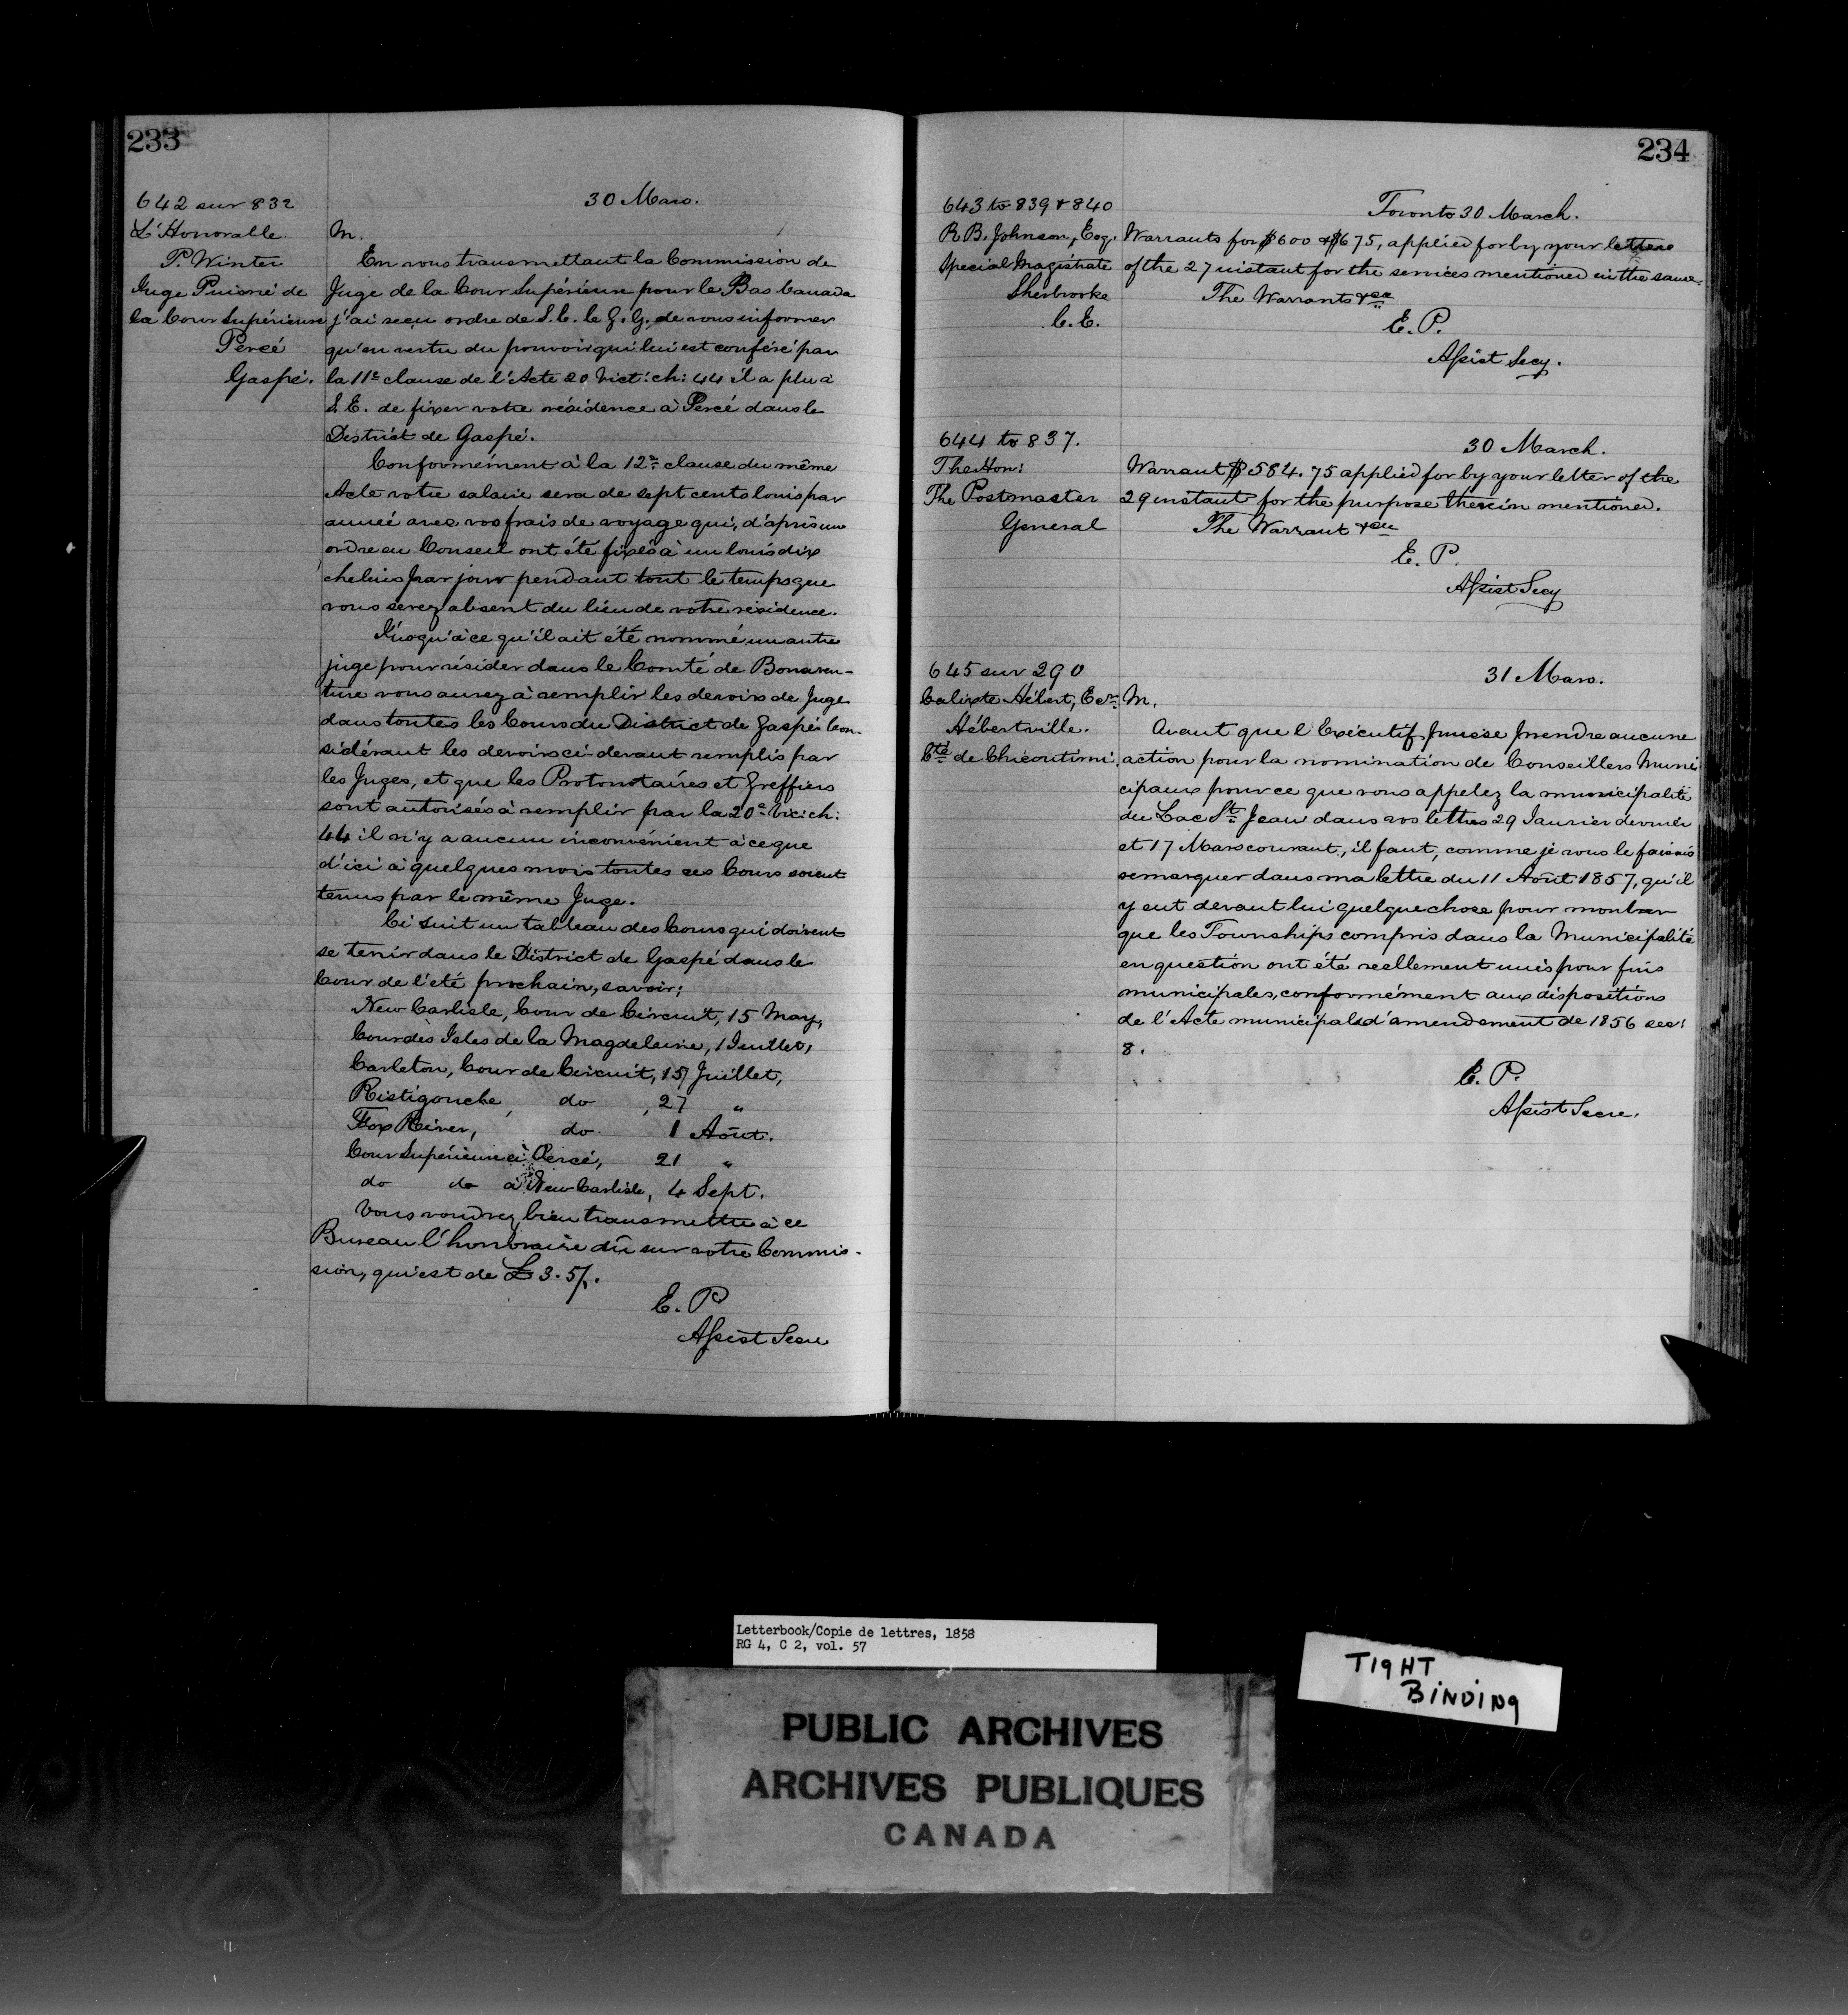 233
642 sur 832
L'Honorable
P. Winter
Juge Puisné de
la Cour Supérieure
Percé
Gaspé.
30 Mars.
M.
En vous transmettant la Commission de
Juge de la Cour Supérieure pour le Bas Canada
j'ai reçu ordre de S. E. le G. G. de vous informer
qu'en vertu du pouvoir qui lui est conféré par
la 11e clause de l'Acte 20 Vict: ch: 44 il a plu à
S. E. de fixer votre résidence à Percé dans le
District de Gaspé.
Conformément à la 12e clause du même
Acte votre salaire sera de sept cents louis par
année avec vos frais de voyage qui, d'après un
ordre en Conseil ont été fixés à un louis dix
chelins par jour pendant tout le temps que
vous serez absent du lieu de votre résidence.
Jusqu'à ce qu'il ait été nommé un autre
juge pour résider dans le Comté de Bonaven-
ture vous aurez à remplir les devoirs de Juge
dans toutes les Cours du District de Gaspé. Con-
sidérant les devoirs ci-devant remplis par
les Juges, et que les Protonotaires et Greffiers
sont autorisés à remplir par la 20e Vic: ch:
44 il n'y a aucun inconvénient à ce que
d'ici à quelques mois toutes ces Cours soient
tenus par le même Juge.
Ci suit un tableau des Cours qui doivent
se tenir dans le District de Gaspé dans le
Cour de l'été prochain, savoir;
New Carlisle, Cour de Circuit, 15 May,
Cour des Isles de la Magdeleine, 1 Juillet,
Carleton, Cour de Circuit, 15 Juillet,
Ristigouche, do , 27 "
Fox River, do 1 Août.
Cour Supérieure à Percé, 21 "
do do à New Carlisle, 4 Sept.
Vous voudrez bien transmettre à ce
Bureau l'honoraire dû sur votre Commis-
sion, qui est de £3.5/.
E. P
Assist Secre
234
643 to 839 & 840
R. B. Johnson, Esq.
Special Magistrate
Sherbrooke
C. E.
Toronto 30 March.
Warrants for $600 & $675, applied for by your letters
of the 27 instant for the services mentioned in the same.
The Warrants &ca
E. P.
Assist Secy.
644 to 837.
The Hon:
The Postmaster
General
30 March.
Warrant $584.75 applied for by your letter of the
29 instant for the purpose therein mentioned.
The Warrant &ca
E. P.
Assist Secy
645 sur 290
Calixte Hébert, Ecr.
Hébertville.
Cté de Chicoutimi.
31 Mars.
M.
Avant que l'Exécutif puisse prendre aucune
action pour la nomination de Conseillers Muni
cipaux pour ce que vous appelez la municipalité
du Lac St Jean dans vos lettres 29 Janvier dernier
et 17 Mars courant, il faut, comme je vous le faisais
remarquer dans ma lettre du 11 Août 1857, qu'il
y eut devant lui quelque chose pour montrer
que les Townships compris dans la Municipalité
en question ont été reellement unis pour fins
municipales, conformément aux dispositions
de l'Acte municipal d'amendement de 1856 sec:
8.
E. P.
Assist Secre.
Letterbook/Copie de lettres, 1858
RG 4, C 2, vol. 57
TIGHT
BINDING
PUBLIC ARCHIVES
ARCHIVES PUBLIQUES
CANADA